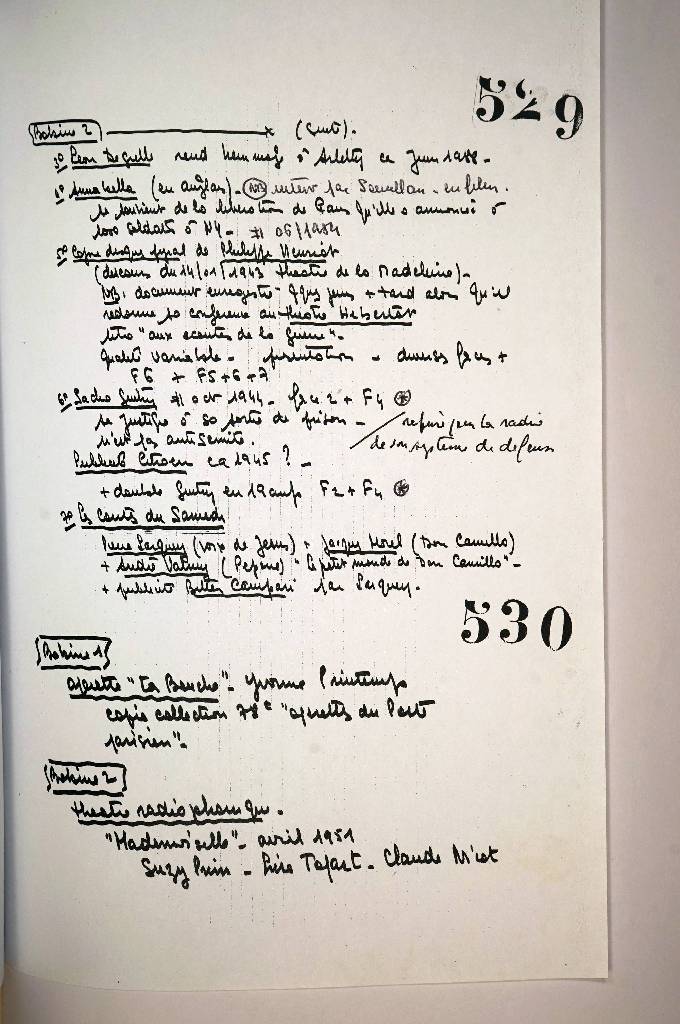 529
Bobine 2 (suite).
3° Léon Degrelle rend hommage à Arletty ca Juin 1988 -
4° Annabella (en anglais) - NB interv par Sevillan - en film.
se souvient de la libération de Paris qu'elle a annoncé à
1000 soldats à NY - 06/1984
5° Copie disque pyral de Philippe Henriot
(discours du 14/01/1943 théâtre de la Madeleine) -
NB: document enregistré qques jours + tard alors qu'il
redonne sa conférence au théâtre Hébertot
titre "aux écoutes de la Guerre" -
qualité variable - présentation - diverses faces +
F6 + F5+6+7
6° Sacha Guitry oct 1944 - face 2 + F4 *
se justifie à sa sortie de prison -
n'est pas antisémite.
refusé par la radio
de son système de défense
Publicité Citroën ca 1945 ? -
+ double Guitry en 19 F2 + F4 *
7° Les du Samedi
Pierre Larquey (voix de Jésus) + Jacques Morel (Don Camillo)
+ André Valmy (Pepone) "le petit monde de Don Camillo" -
+ publicité Bitter Campari par Larquey.
530
Bobine 1
opérette "La Bouche" - Yvonne Printemps
copie collection 78t "opérettes du Poste
parisien" -
Bobine 2
théâtre radiophonique.
"Mademoiselle" - avril 1951
Suzy Prim - Line Tofart - Claude Nicot